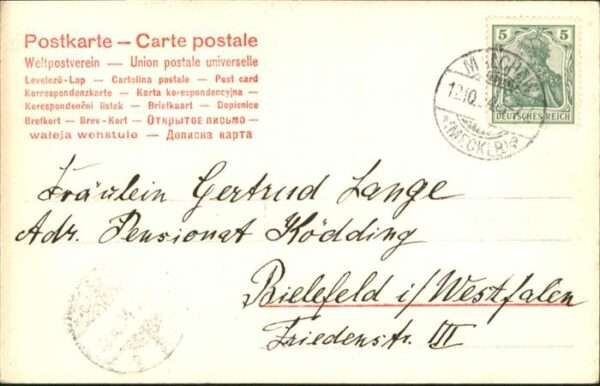 Postkarte — Carte postale
Weltpostverein — Union postale universelle
Levelező-Lap — Cartolina postale — Post card
Korespondenzkarte — Karta korespondencyjna —
Korespondenční lístek — Briefkaart — Dopisnice
Brefkort — Brev-Kort — Открытое письмо —
wateja wohstulo — Дописна карта
5 5
DEUTSCHES REICH
(MECKLB)
Fräulein Gertrud Lange
Adr. Pensionat Ködding
Bielefeld i/Westfalen
Friedenstr. III